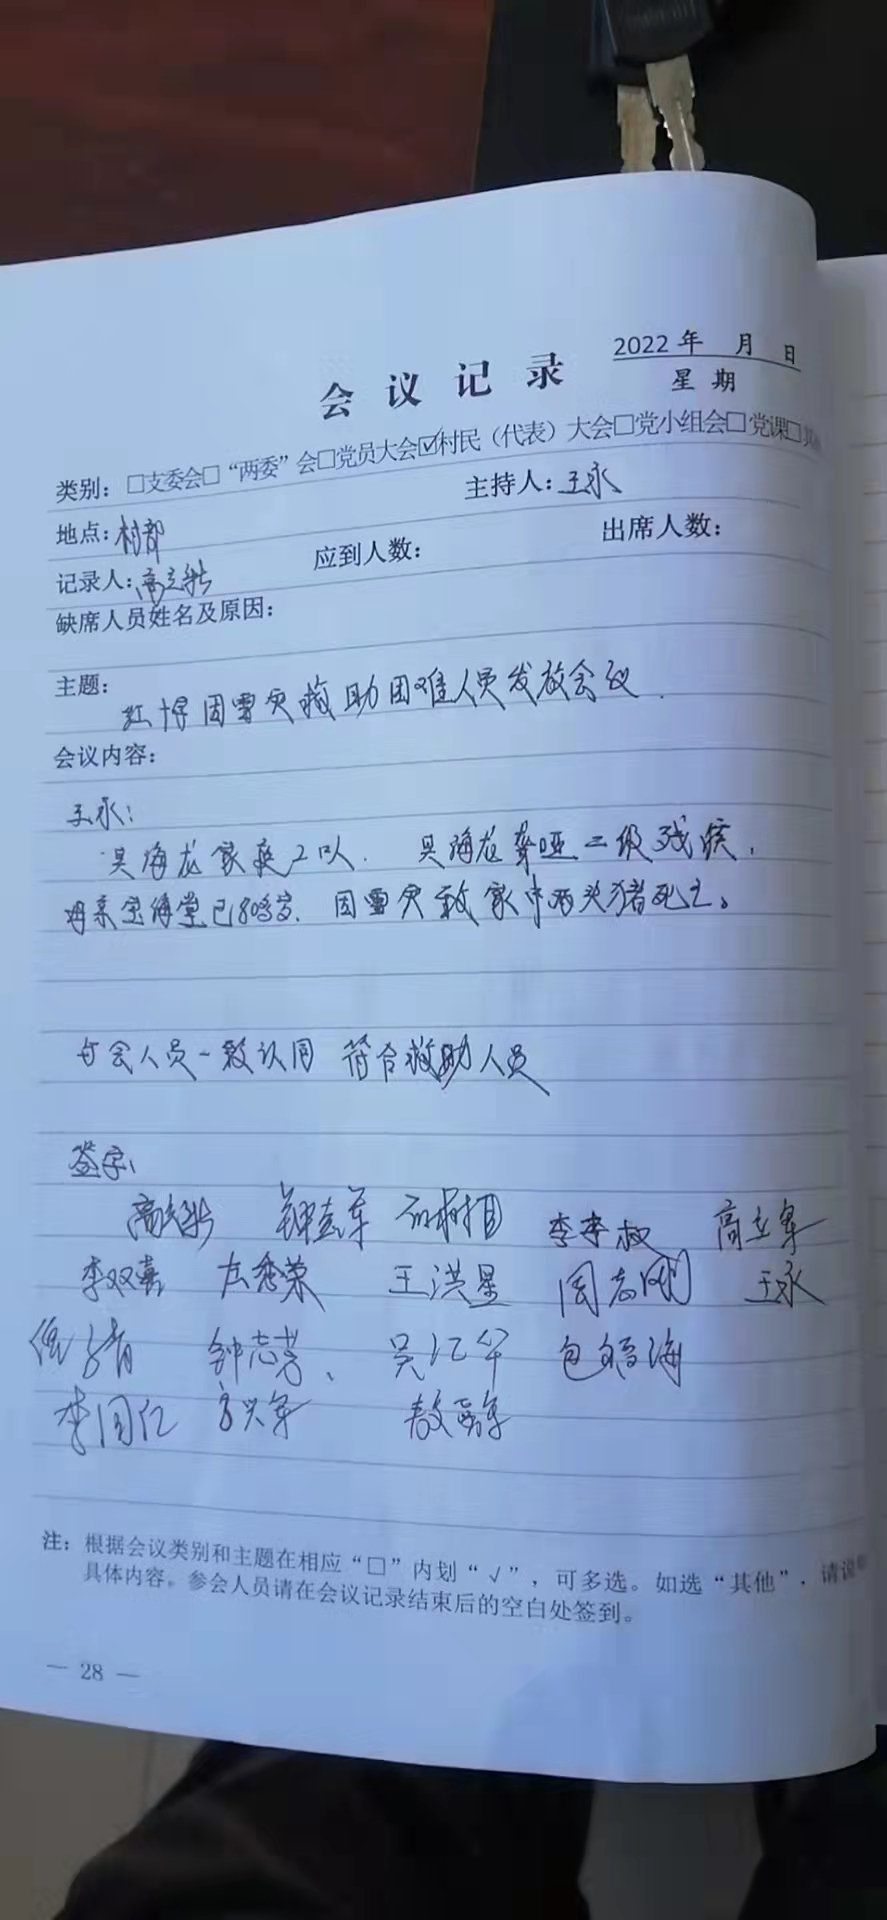 会议记录
2022 年 月 日
星 期
类别：□支委会□“两委”会□党员大会☑村民（代表）大会□党小组会□党课□
地点：村部 主持人：王永
记录人：高 应到人数： 出席人数：
缺席人员姓名及原因：
主题：
红 因雪灾救助困难人员发放会议.
会议内容：
王永：
吴海龙家庭2口人. 吴海龙聋哑二级残疾，
母亲宝海堂已80多岁. 因雪灾致家中两头猪死亡。
与会人员一致认同 符合救助人员
签字：
高 李 叔 高立军
李双喜 秀荣 王洪星 周志刚 王永
钟志芳、 吴 华 包 海
李国仁 敖 军
注：根据会议类别和主题在相应“□”内划“√”，可多选。如选“其他”，请说
具体内容。参会人员请在会议记录结束后的空白处签到。
— 28 —